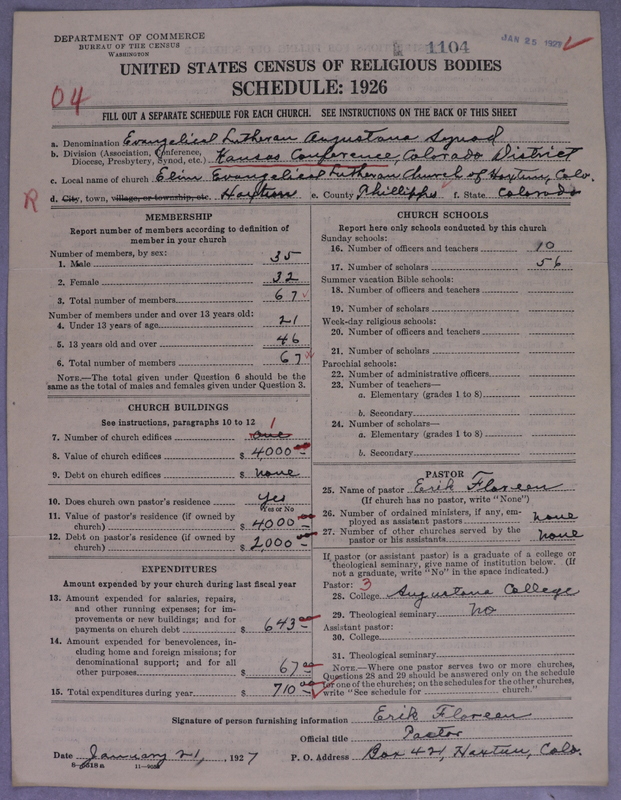 DEPARTMENT OF COMMERCE
BUREAU OF THE CENSUS
WASHINGTON
1104
JAN 25 1927
UNITED STATES CENSUS OF RELIGIOUS BODIES
SCHEDULE: 1926
04
FILL OUT A SEPARATE SCHEDULE FOR EACH CHURCH. SEE INSTRUCTIONS ON THE BACK OF THIS SHEET
a. Denomination Evangelical Lutheran Augustana Synod
b. Division (Association, Conference, Diocese, Presbytery, Synod, etc.) Kansas Conference, Colorado District
c. Local name of church Elim Evangelical Lutheran Church of Haxtun, Colo.
R
d. City, town, village, or township, etc. Haxtun e. County Phillipps f. State Colorado
MEMBERSHIP
Report number of members according to definition of
member in your church
Number of members, by sex:
1. Male 35
2. Female 32
3. Total number of members 67
Number of members under and over 13 years old:
4. Under 13 years of age 21
5. 13 years old and over 46
6. Total number of members 67
NOTE.—The total given under Question 6 should be the
same as the total of males and females given under Question 3.
CHURCH BUILDINGS
See instructions, paragraphs 10 to 12
7. Number of church edifices one 1
8. Value of church edifices $ 4000
9. Debt on church edifices $ none
10. Does church own pastor's residence yes
Yes or No
11. Value of pastor's residence (if owned by
church) $ 4000
12. Debt on pastor's residence (if owned by
church) $ 2,000
EXPENDITURES
Amount expended by your church during last fiscal year
13. Amount expended for salaries, repairs,
and other running expenses; for im-
provements or new buildings; and for
payments on church debt $ 643
14. Amount expended for benevolences, in-
cluding home and foreign missions; for
denominational support; and for all
other purposes $ 67 00
15. Total expenditures during year $ 710 00
CHURCH SCHOOLS
Report here only schools conducted by this church
Sunday schools:
16. Number of officers and teachers 10
17. Number of scholars 56
Summer vacation Bible schools:
18. Number of officers and teachers
19. Number of scholars
Week-day religious schools:
20. Number of officers and teachers
21. Number of scholars
Parochial schools:
22. Number of administrative officers
23. Number of teachers—
a. Elementary (grades 1 to 8)
b. Secondary
24. Number of scholars—
a. Elementary (grades 1 to 8)
b. Secondary
PASTOR
25. Name of pastor Erik Floreen
(If church has no pastor, write "None")
26. Number of ordained ministers, if any, em-
ployed as assistant pastors none
27. Number of other churches served by the
pastor or his assistants none
If pastor (or assistant pastor) is a graduate of a college or
theological seminary, give name of institution below. (If
not a graduate, write "No" in the space indicated.)
Pastor: 3
28. College Augustana College
29. Theological seminary No
Assistant pastor:
30. College
31. Theological seminary
NOTE.—Where one pastor serves two or more churches,
Questions 28 and 29 should be answered only on the schedule
for one of the churches; on the schedules for the other churches,
write "See schedule for church."
Signature of person furnishing information Erik Floreen
Official title Pastor
Date January 21, 1927 P. O. Address Box 421, Haxtun, Colo.